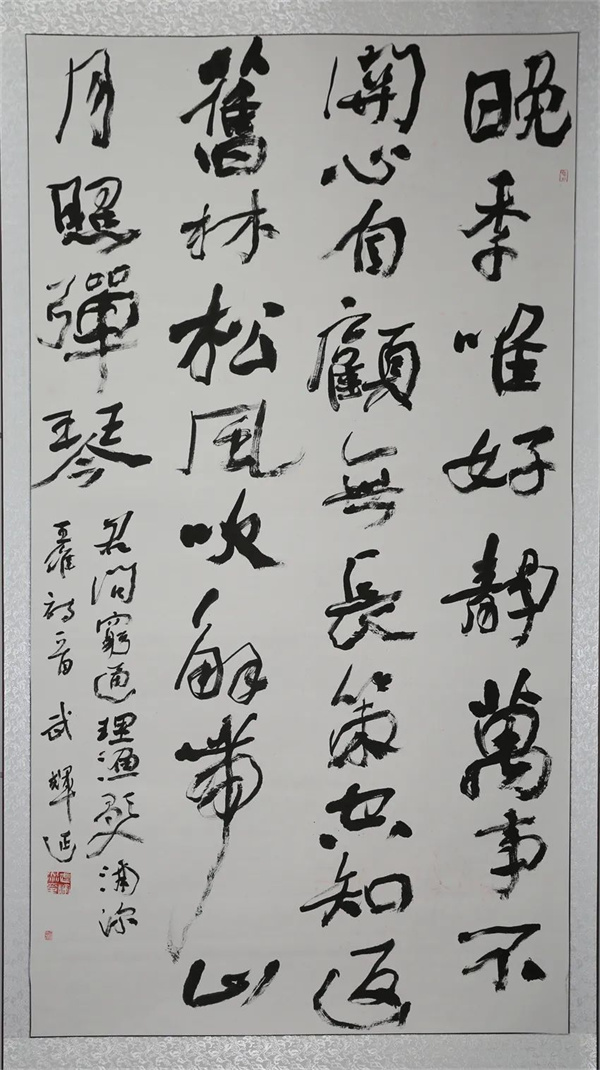 晚季唯好靜萬事不
關心自顧無長策空知返
舊林松風吹解帶山
月照彈琴
君問窮通理漁歌入浦深
王維詩一首 武輝